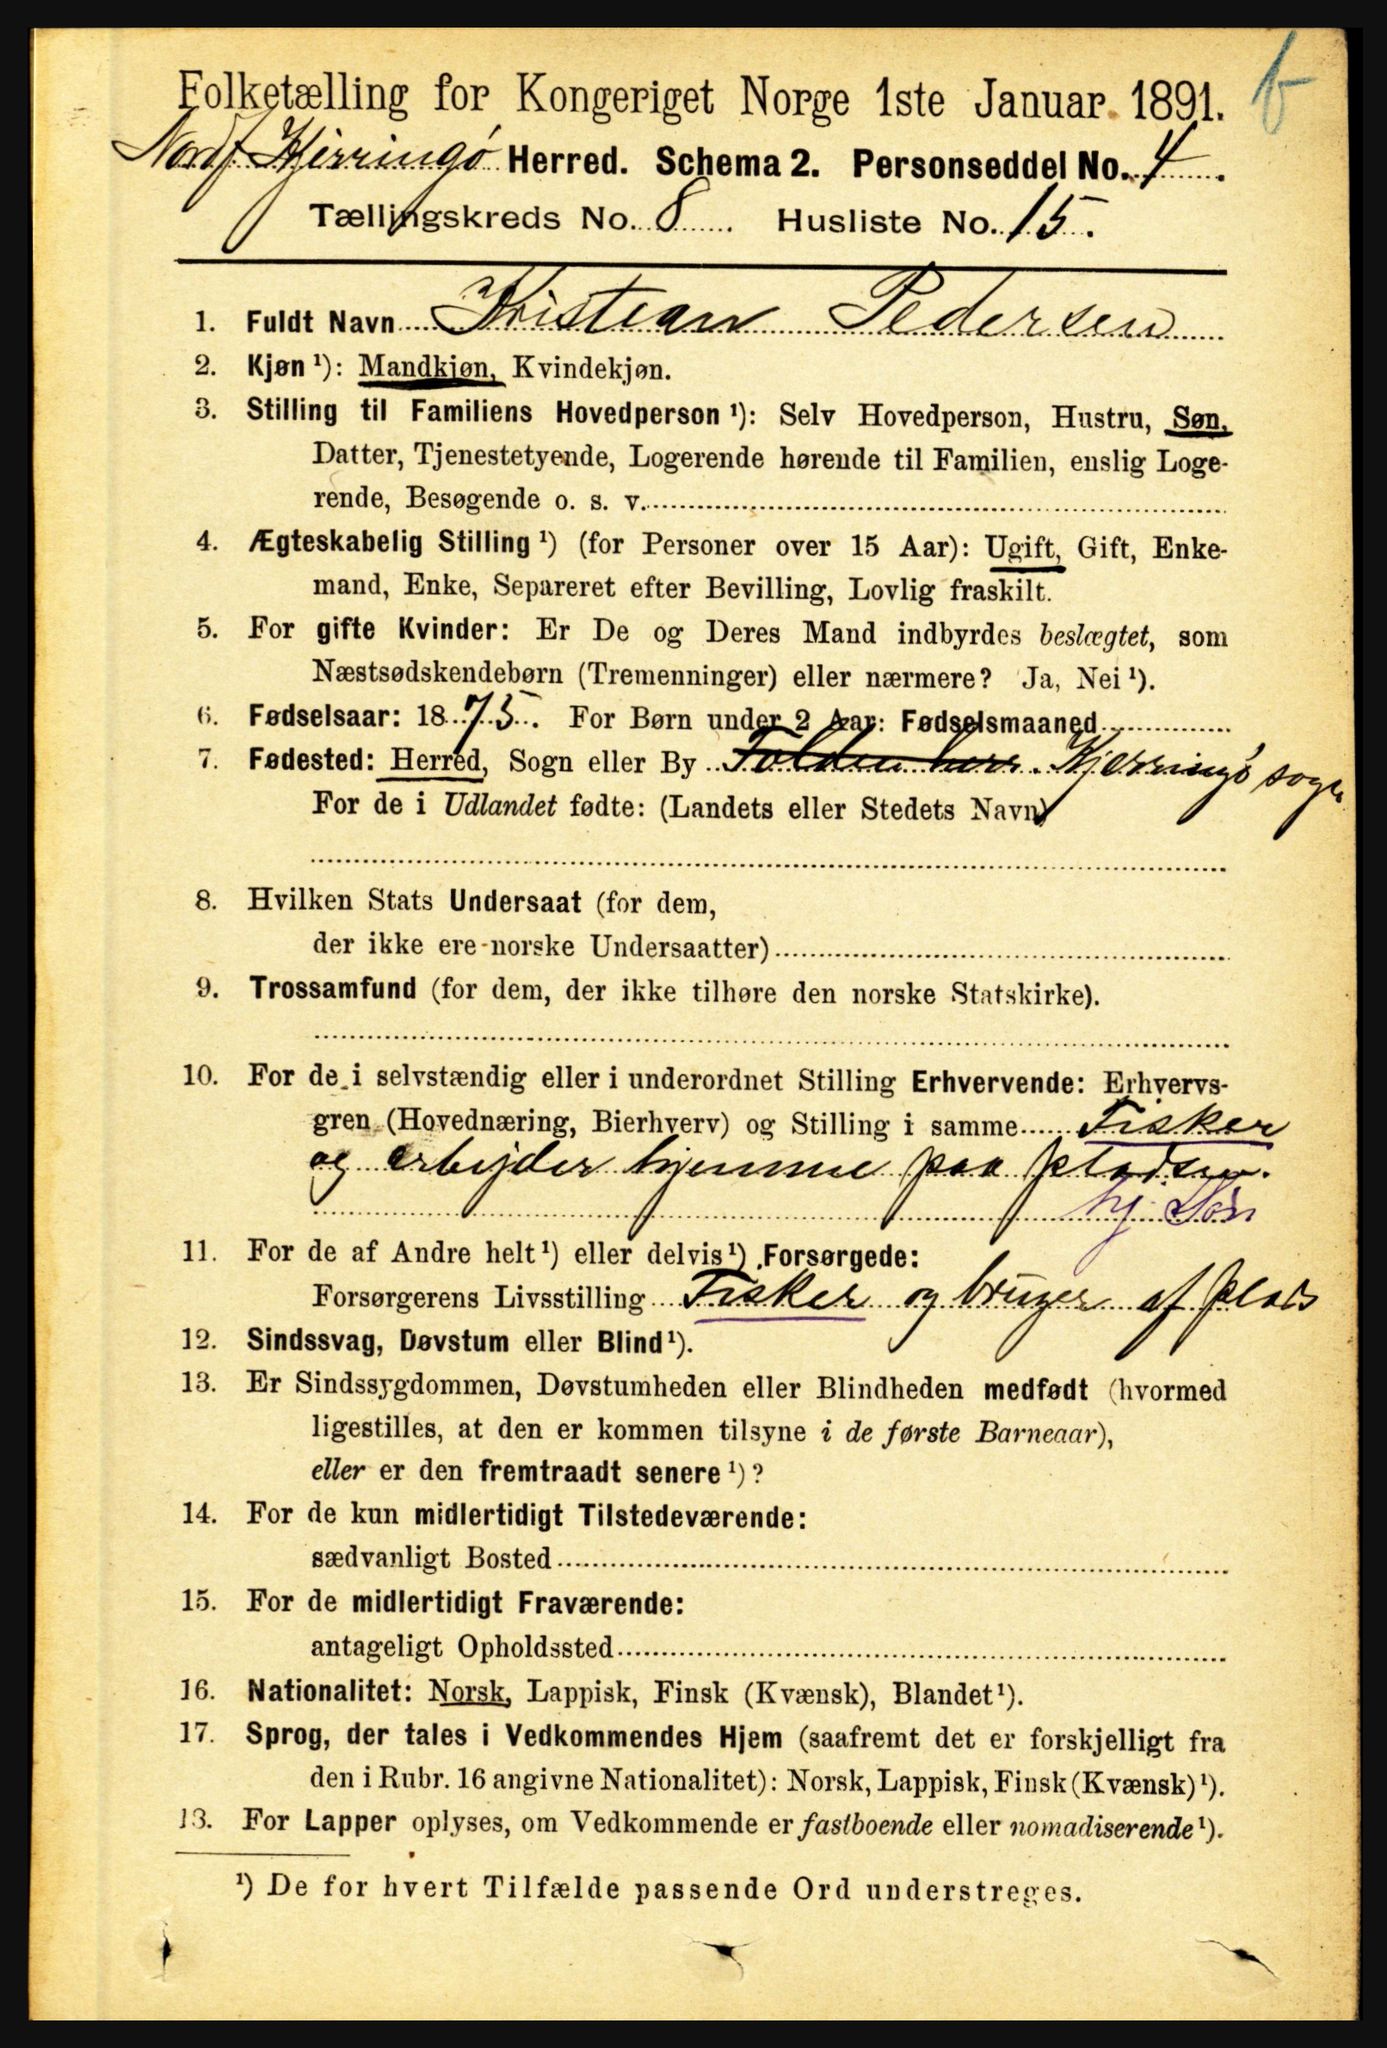 Folketælling for Kongeriget Norge 1ste Januar 1891.
Nordf. Kjerringø Herred. Schema 2. Personseddel No. 4.
Tællingskreds No. 8. Husliste No. 15.
1. Fuldt Navn Kristian Pedersen
2. Kjøn ¹): Mandkjøn, Kvindekjøn.
3. Stilling til Familiens Hovedperson ¹): Selv Hovedperson, Hustru, Søn,
Datter, Tjenestetyende, Logerende hørende til Familien, enslig Loge-
rende, Besøgende o. s. v.
4. Ægteskabelig Stilling ¹) (for Personer over 15 Aar): Ugift, Gift, Enke-
mand, Enke, Separeret efter Bevilling, Lovlig fraskilt.
5. For gifte Kvinder: Er De og Deres Mand indbyrdes beslægtet, som
Næstsødskendebørn (Tremenninger) eller nærmere? Ja, Nei ¹).
6. Fødselsaar: 1875. For Børn under 2 Aar: Fødselsmaaned
7. Fødested: Herred, Sogn eller By Folden herr. Kjerringø sogn
For de i Udlandet fødte: (Landets eller Stedets Navn)
8. Hvilken Stats Undersaat (for dem,
der ikke ere norske Undersaatter)
9. Trossamfund (for dem, der ikke tilhøre den norske Statskirke).
10. For de i selvstændig eller i underordnet Stilling Erhvervende: Erhvervs-
gren (Hovednæring, Bierhverv) og Stilling i samme Fisker
og arbejder hjemme paa pladsen.
hj. Søn
11. For de af Andre helt ¹) eller delvis ¹) Forsørgede:
Forsørgerens Livsstilling Fisker og bruger af plads
12. Sindssvag, Døvstum eller Blind ¹).
13. Er Sindssygdommen, Døvstumheden eller Blindheden medfødt (hvormed
ligestilles, at den er kommen tilsyne i de første Barneaar),
eller er den fremtraadt senere ¹)?
14. For de kun midlertidigt Tilstedeværende:
sædvanligt Bosted
15. For de midlertidigt Fraværende:
antageligt Opholdssted
16. Nationalitet: Norsk, Lappisk, Finsk (Kvænsk), Blandet ¹).
17. Sprog, der tales i Vedkommendes Hjem (saafremt det er forskjelligt fra
den i Rubr. 16 angivne Nationalitet): Norsk, Lappisk, Finsk (Kvænsk) ¹).
18. For Lapper oplyses, om Vedkommende er fastboende eller nomadiserende ¹).
¹) De for hvert Tilfælde passende Ord understreges.